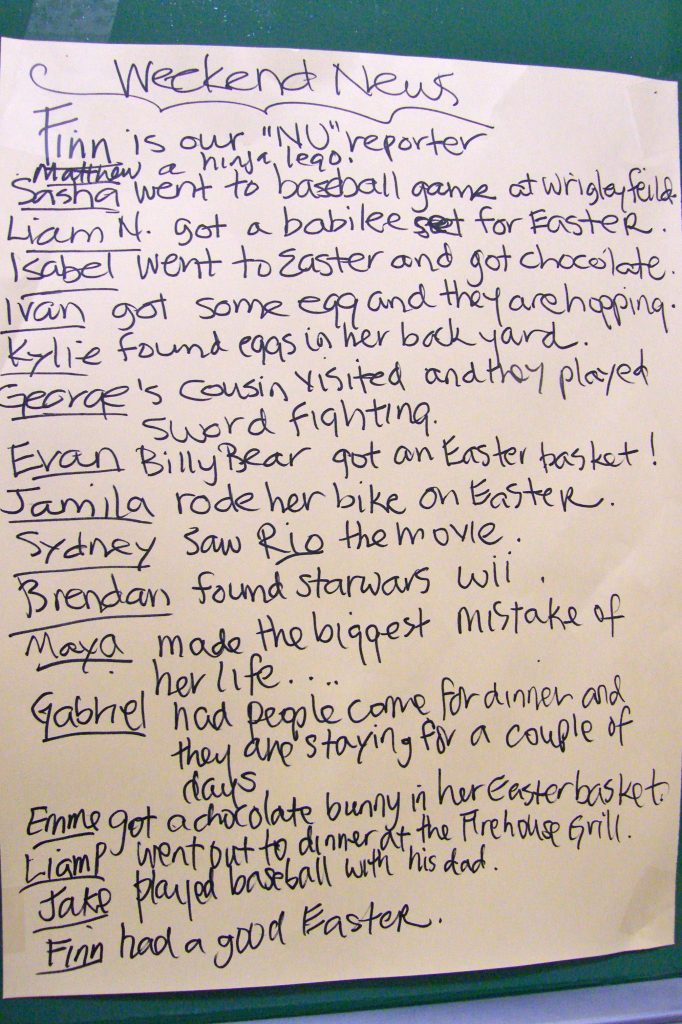 Weekend News
Finn is our "NU" reporter
Matthew a ninja lego.
Sasha went to baseball game at Wrigley feild.
Liam N. got a babilee set for Easter.
Isabel went to Easter and got chocolate.
Ivan got some egg and they are hopping.
Kylie found eggs in her back yard.
George's cousin visited and they played
sword fighting.
Evan BillyBear got an Easter basket!
Jamila rode her bike on Easter.
Sydney saw Rio the movie.
Brendan found starwars wii.
Maya made the biggest mistake of
her life....
Gabriel had people come for dinner and
they are staying for a couple of
days
Emme got a chocolate bunny in her Easter basket.
Liam P went out to dinner at the Firehouse Grill.
Jake played baseball with his dad.
Finn had a good Easter.